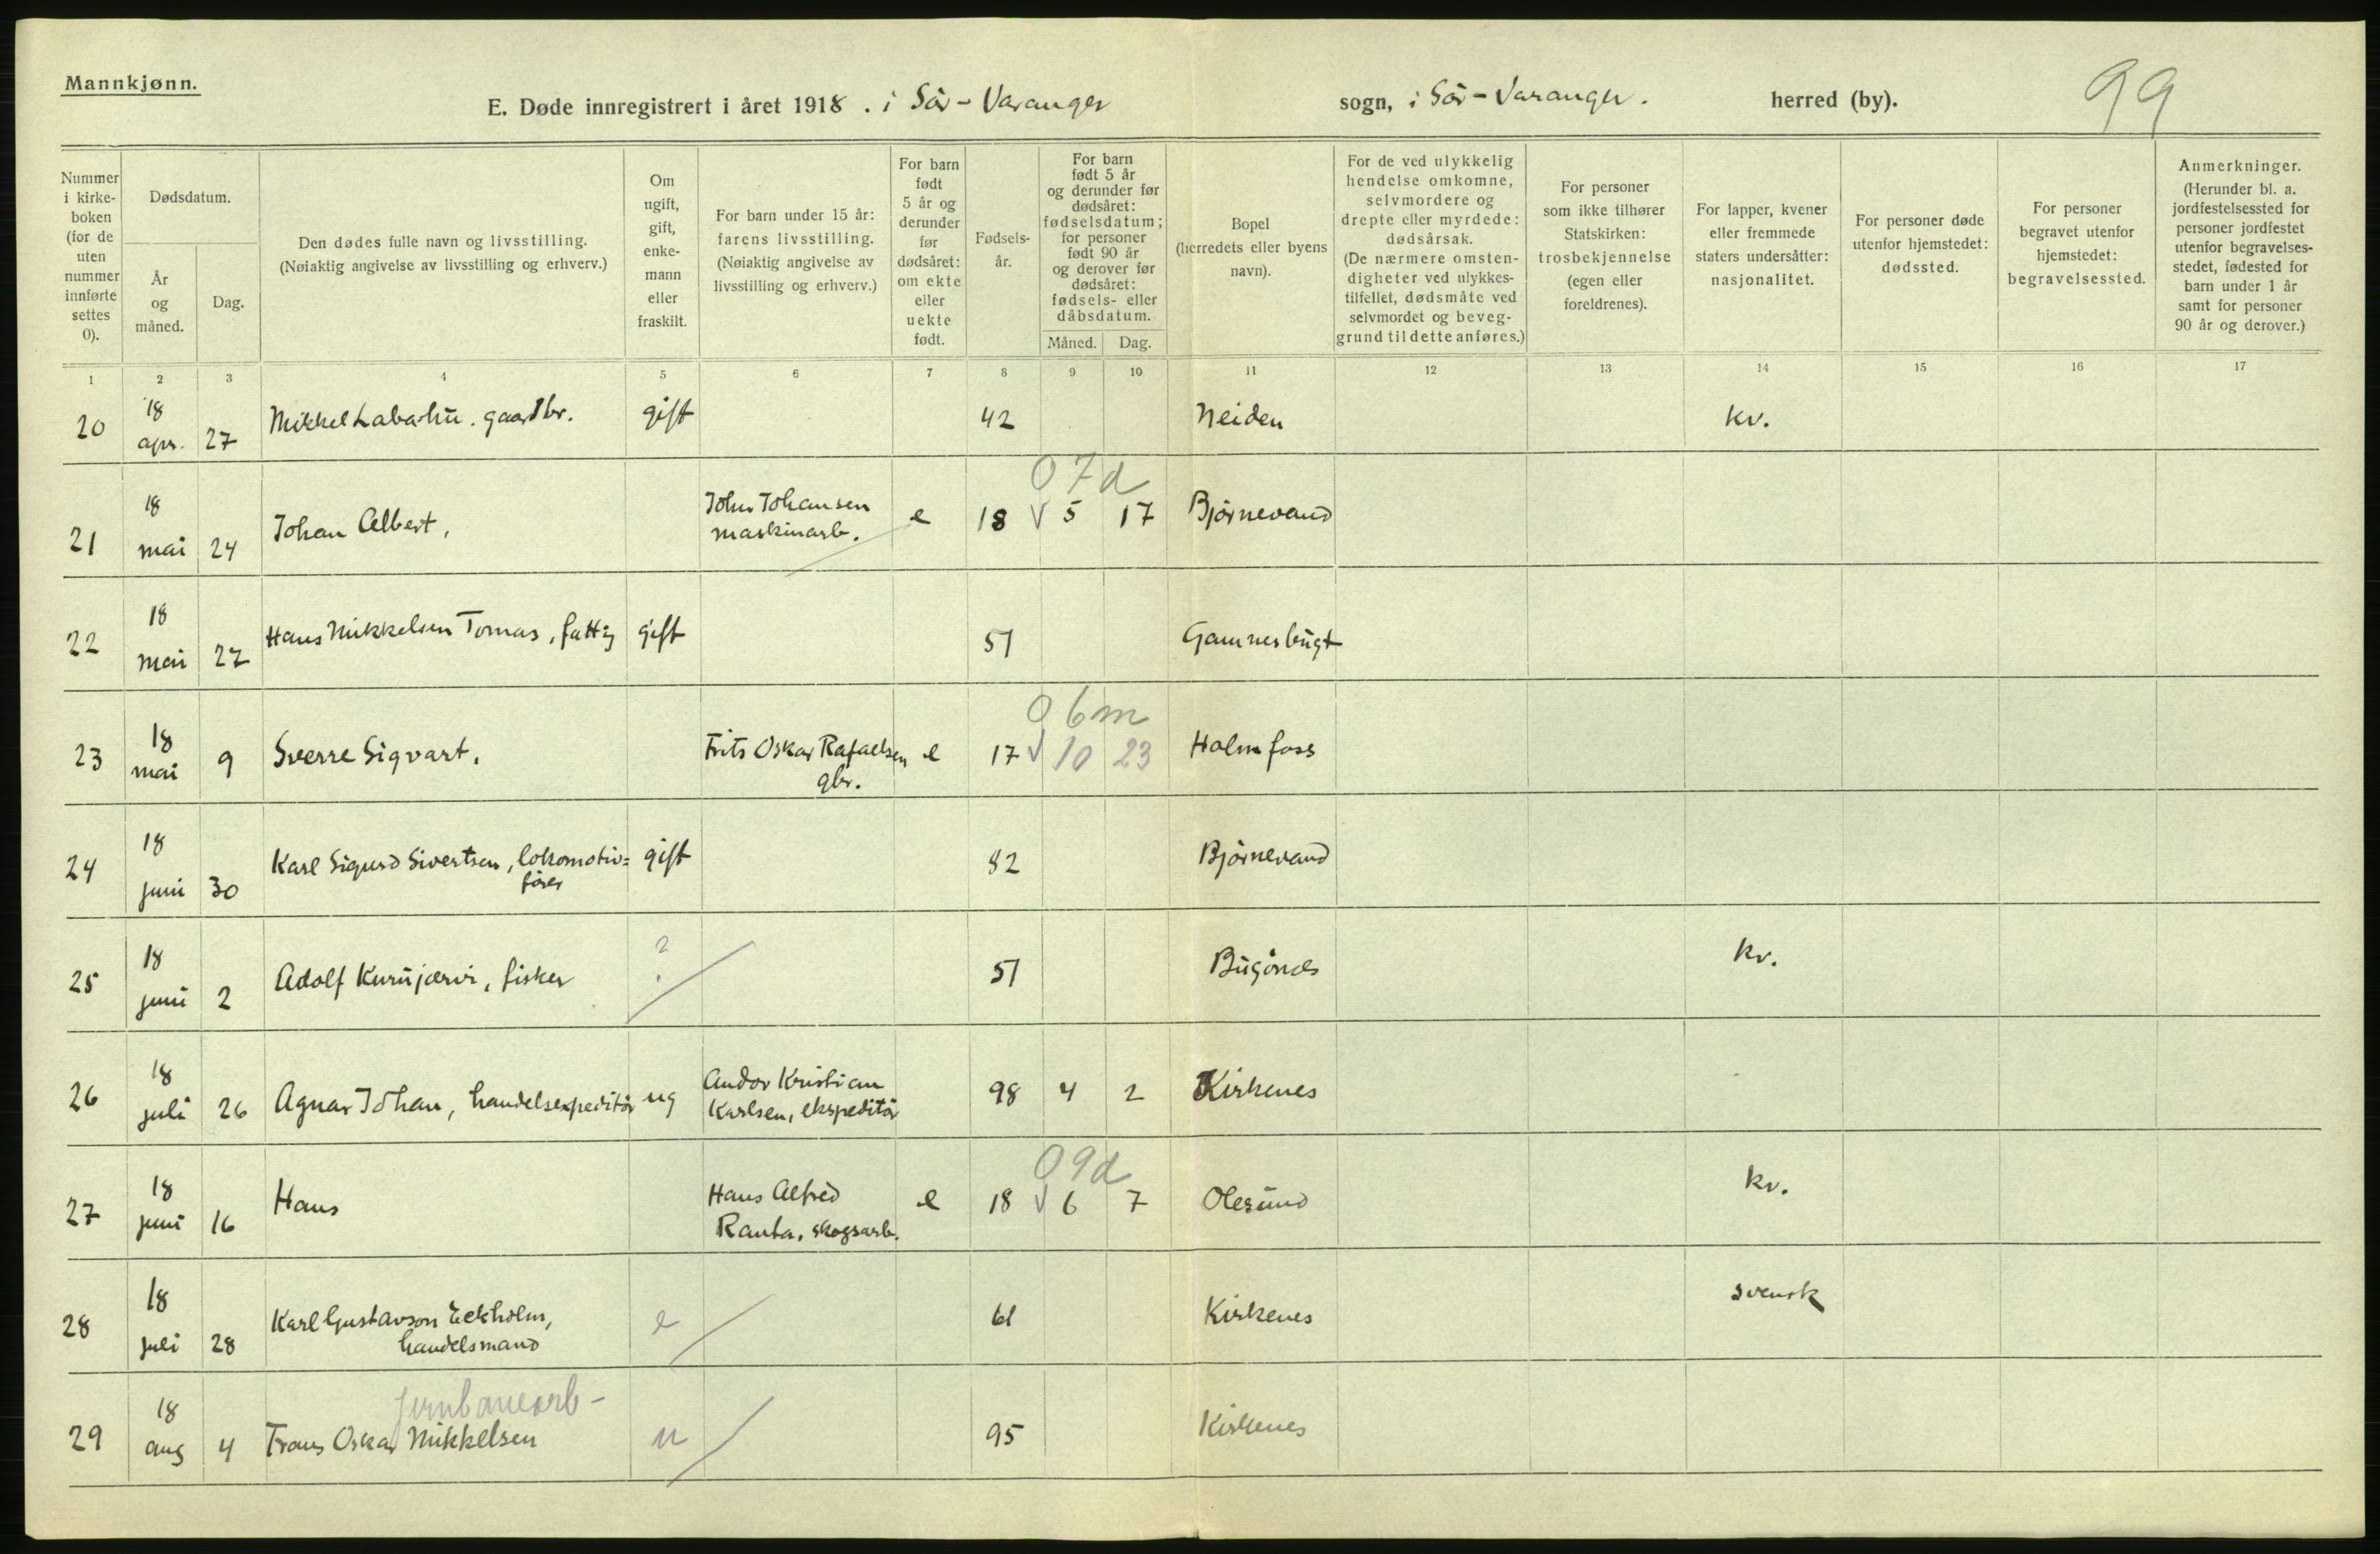 Mannkjønn.
E. Døde innregistrert i året 1918 . i Sør-Varanger sogn, i Sør-Varanger. herred (by). 99
Nummer
i kirke-
boken
(for de
uten
nummer
innførte
settes
0).
Dødsdatum.
År
og
måned.
Dag.
Den dødes fulle navn og livsstilling.
(Nøiaktig angivelse av livsstilling og erhverv.)
Om
ugift,
gift,
enke-
mann
eller
fraskilt.
For barn under 15 år:
farens livsstilling.
(Nøiaktig angivelse av
livsstilling og erhverv.)
For barn
født
5 år og
derunder
før
dødsåret:
om ekte
eller
uekte
født.
Fødsels-
år.
For barn
født 5 år
og derunder før
dødsåret:
fødselsdatum;
for personer
født 90 år
og derover før
dødsåret:
fødsels- eller
dåbsdatum.
Måned. Dag.
Bopel
(herredets eller byens
navn).
For de ved ulykkelig
hendelse omkomne,
selvmordere og
drepte eller myrdede:
dødsårsak.
(De nærmere omsten-
digheter ved ulykkes-
tilfellet, dødsmåte ved
selvmordet og beveg-
grund til dette anføres.)
For personer
som ikke tilhører
Statskirken:
trosbekjennelse
(egen eller
foreldrenes).
For lapper, kvener
eller fremmede
staters undersåtter:
nasjonalitet.
For personer døde
utenfor hjemstedet:
dødssted.
For personer
begravet utenfor
hjemstedet:
begravelsessted.
Anmerkninger.
(Herunder bl. a.
jordfestelsessted for
personer jordfestet
utenfor begravelses-
stedet, fødested for
barn under 1 år
samt for personer
90 år og derover.)
1 2 3 4 5 6 7 8 9 10 11 12 13 14 15 16 17
20 18 apr. 27 Mikkel Labahü. gaardbr. gift 42 Neiden kv.
07d
21 18 mai 24 Johan Albert, John Johansen e 18 V 5 17 Bjørnevand
maskinarb.
22 18 mai 27 Hans Mikkelsen Tomas, fattig gift 51 Gamnesbugt
06m
23 18 mai 9 Sverre Sigvart. Frits Oskar Rafaelsen e 17 V 10 23 Holmfoss
gbr.
24 18 juni 30 Karl Sigurd Sivertsen, lokomotiv= gift 82 Bjørnevand
fører
25 18 juni 2 Adolf Kurujærvi, fisker ? 51 Bugønes kv.
26 18 juli 26 Agnar Johan, handelsexpeditør ug Andor Kristian 98 4 2 Kirkenes
Karlsen, ekspeditør
09d
27 18 juni 16 Hans Hans Alfred e 18 V 6 7 Olesund kv.
Ranta, skogsarb.
28 18 juli 28 Karl Gustavson Eekholm, e 61 Kirkenes svensk
handelsmand
jernbanearb-
29 18 aug 4 Frans Oskar Mikkelsen u 95 Kirkenes